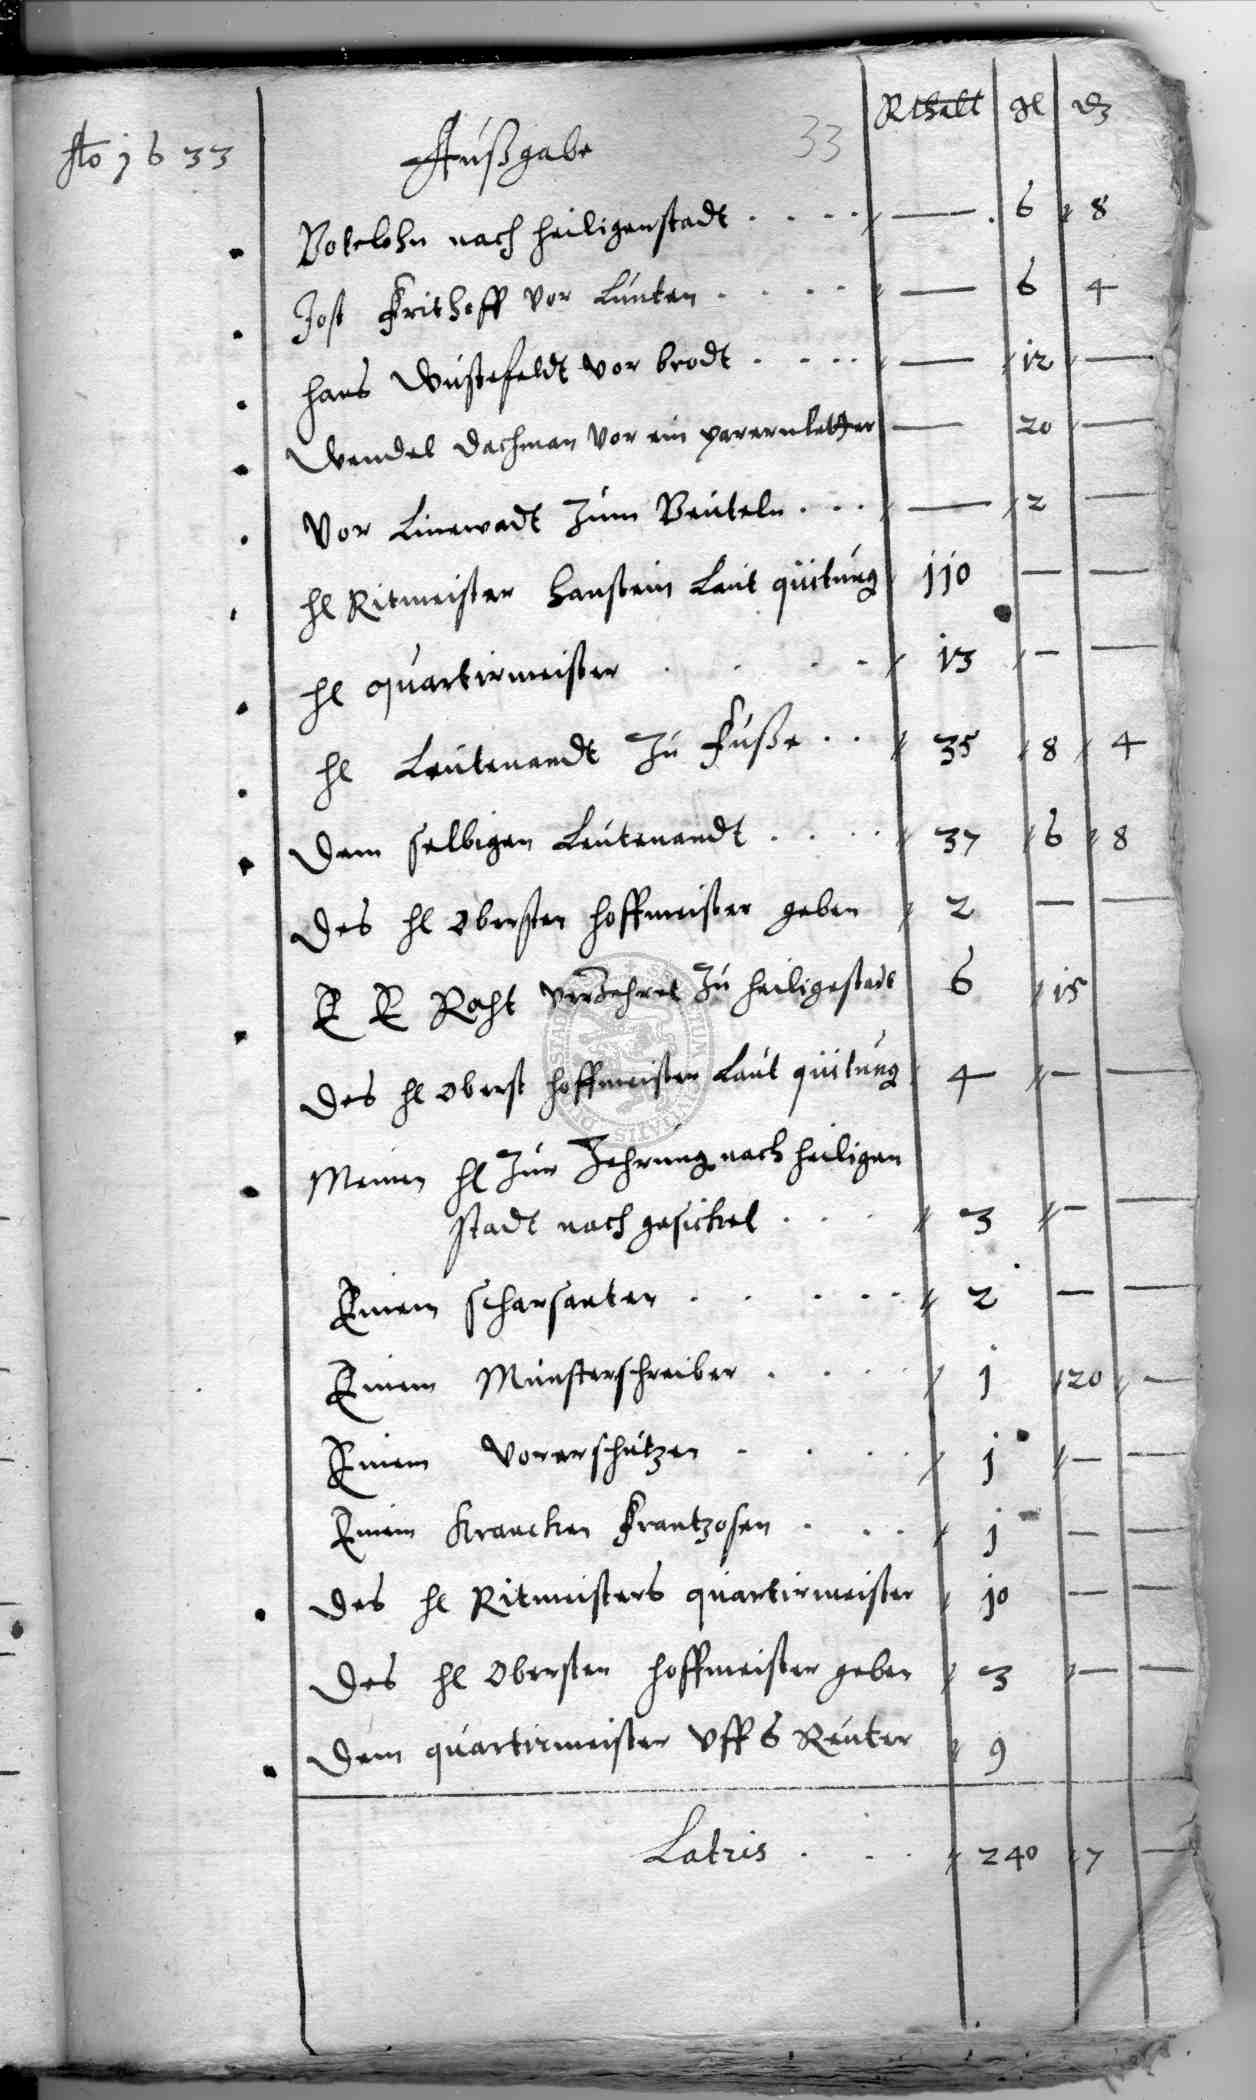 Ao 1633
Außgabe 33 Rthall gl d3
Botelohn nach heiligenstadt . . . . — 6 8
Jost Frithoff vor Lunten . . . . — 6 4
hans Wüstefeldt vor brodt . . . . — 12 —
Wendel Dachman vor ein — 20 —
Vor Linewadt zum Beuteln . . . — 2 —
hl Ritmeister Hanstein Laut quitung 110 — —
hl quartirmeister . . . . 13 — —
hl Leutenandt zu Fuße . . 35 8 4
Dem selbigen Leutenandt . . . . 37 6 8
Des hl Obersten hoffmeister geben 2 — —
E E Raht verzehret zu heiligestadt 6 15
Des hl Oberst hoffmeister Laut quitung 4 — —
Meinen hl zur Zehrung nach heiligen
stadt nach geschickel . . . 3 — —
Einem scharsanten . . . . . 2 — —
Einem Munsterschreiber . . . . 1 20 —
Einem Vorerschützen . . . . 1 — —
Einem Krancken Frantzosen . . . 1 — —
Des hl Ritmeisters quartirmeister 10 — —
Des hl Obersten hoffmeister geben 3 — —
Dem quartirmeister Uff 6 Reuter 9
Latris . . . 240 7 —